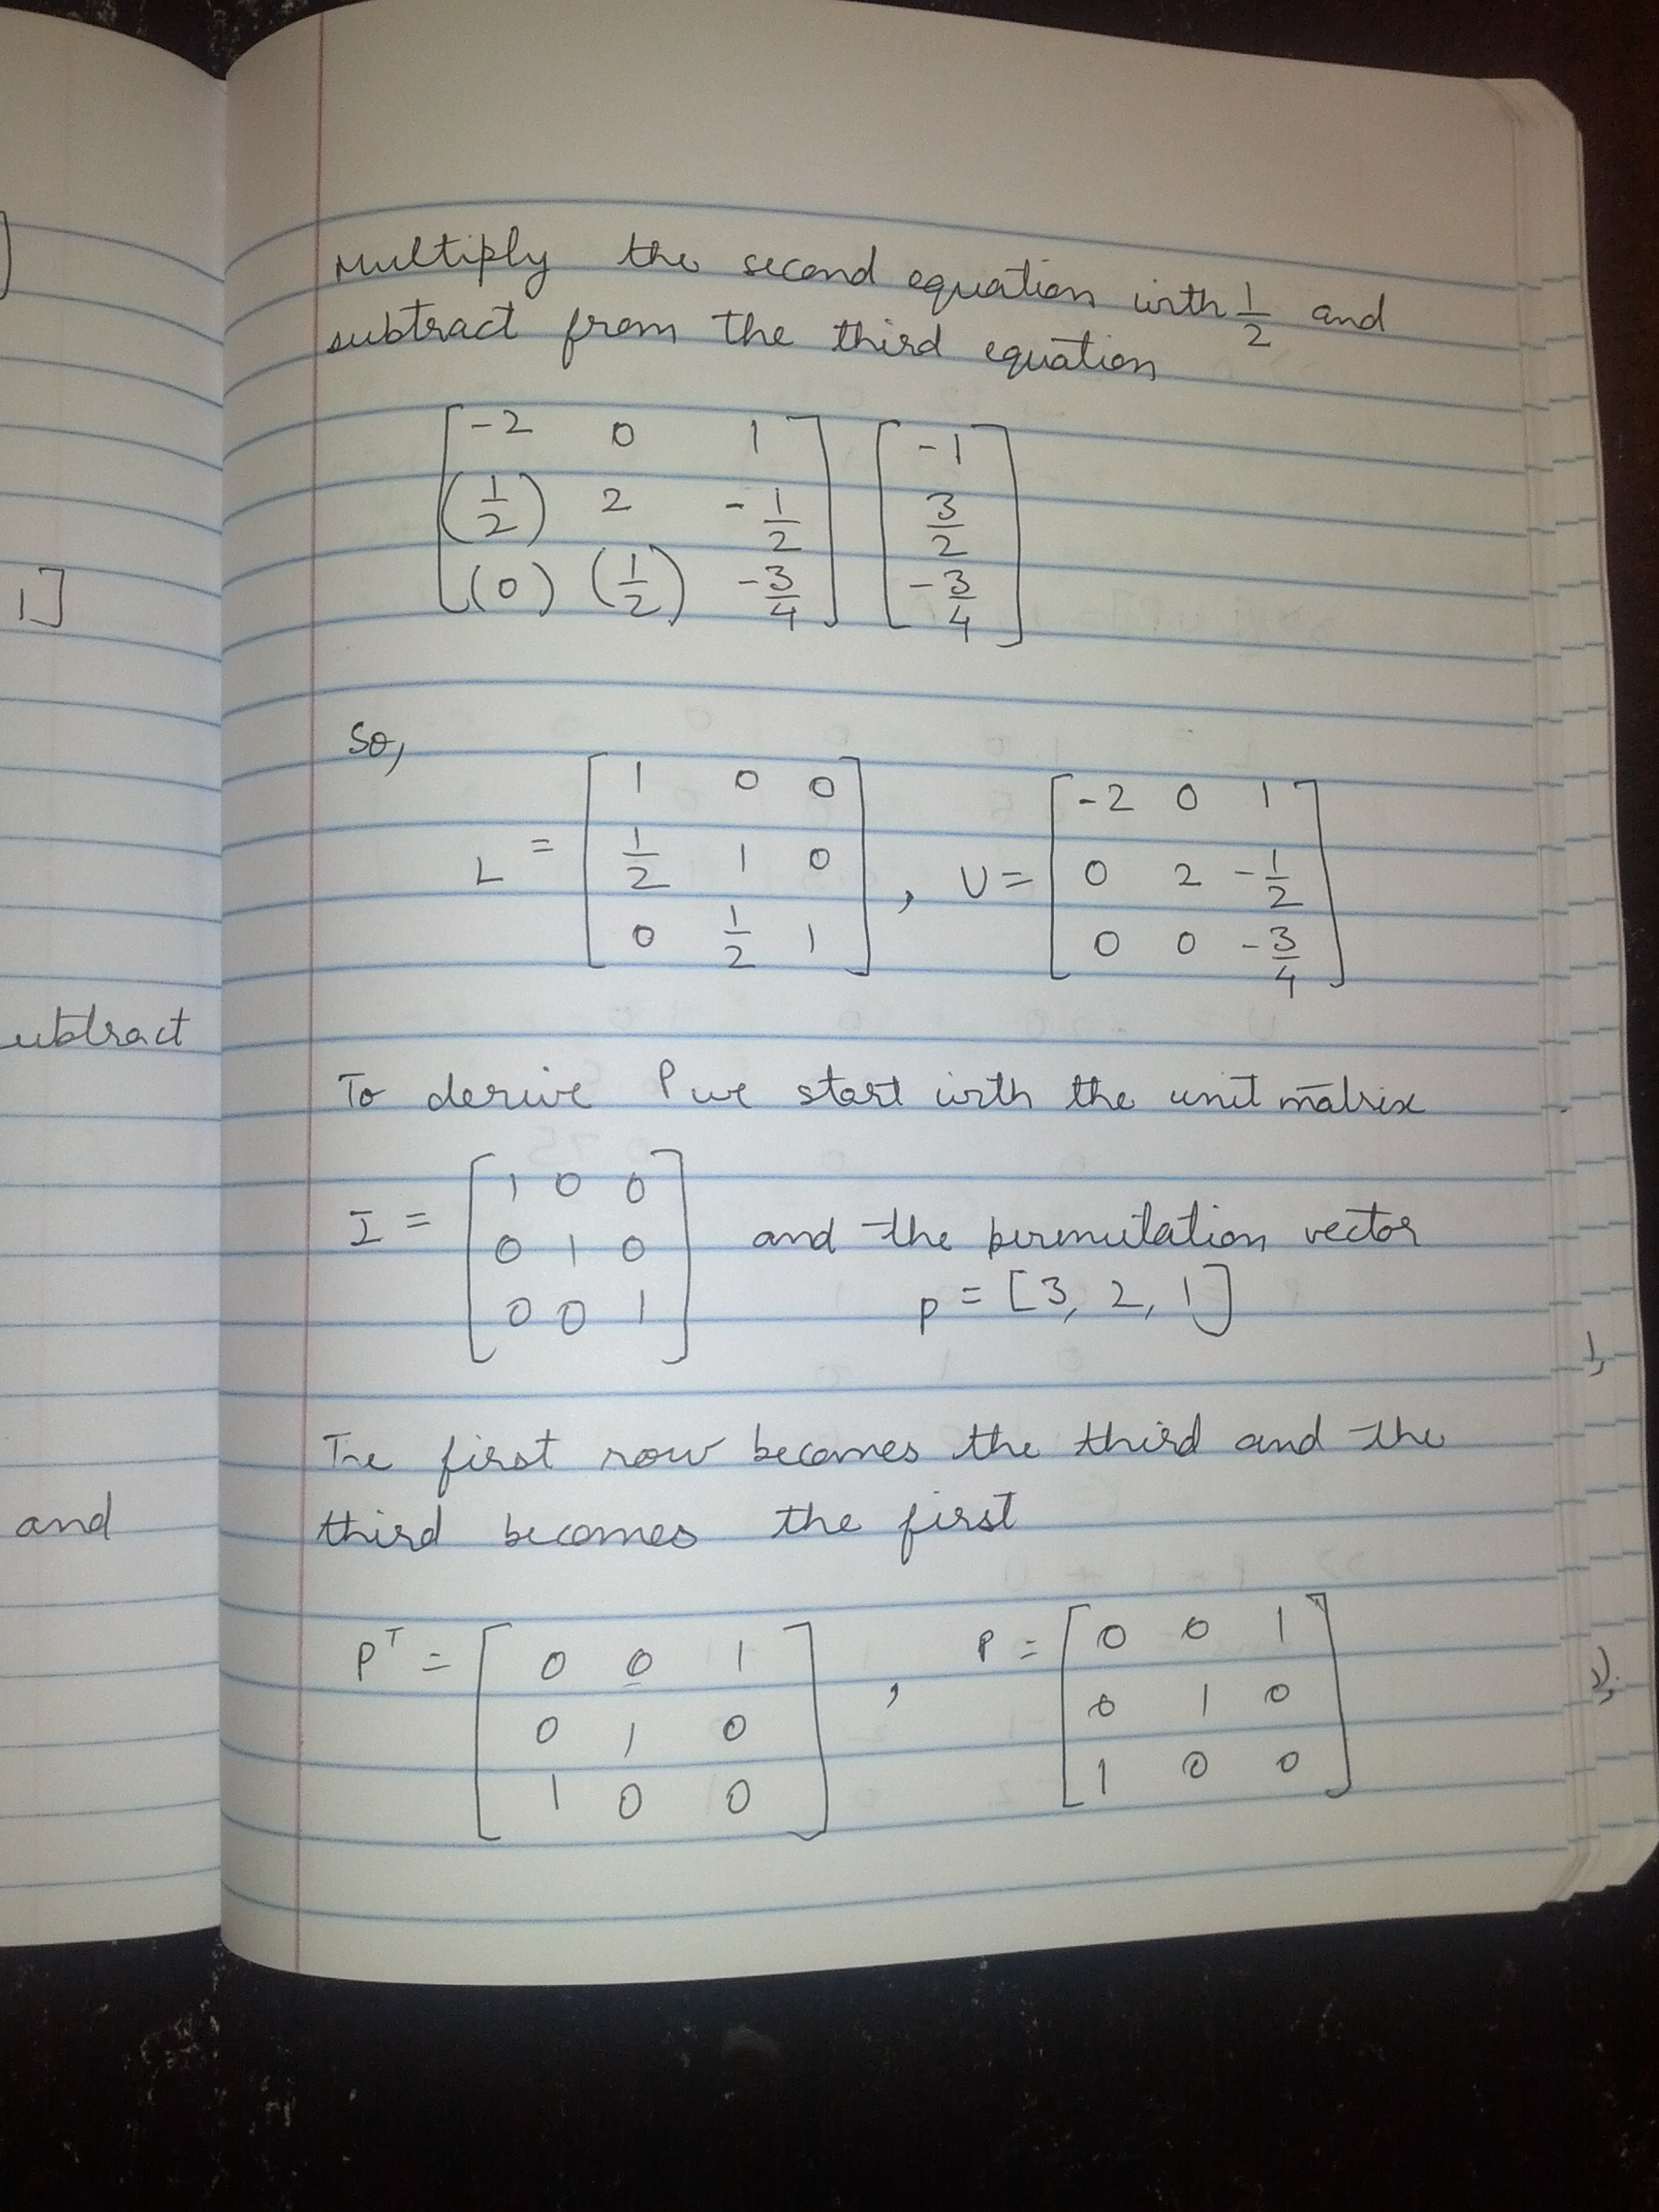 ]
1]
ubtract
and
Multiply the second equation with 1/2 and
subtract from the third equation
[ -2 0 1 ] [ -1 ]
[ (1/2) 2 -1/2 ] [ 3/2 ]
[ (0) (1/2) -3/4 ] [ -3/4 ]
So,
L = [ 1 0 0 ] , U = [ -2 0 1 ]
[ 1/2 1 0 ] [ 0 2 -1/2 ]
[ 0 1/2 1 ] [ 0 0 -3/4 ]
To derive P we start with the unit matrix
I = [ 1 0 0 ] and the permutation vector
[ 0 1 0 ] p = [3, 2, 1]
[ 0 0 1 ]
The first row becomes the third and the
third becomes the first
P^T = [ 0 0 1 ] , P = [ 0 0 1 ]
[ 0 1 0 ] [ 0 1 0 ]
[ 1 0 0 ] [ 1 0 0 ]